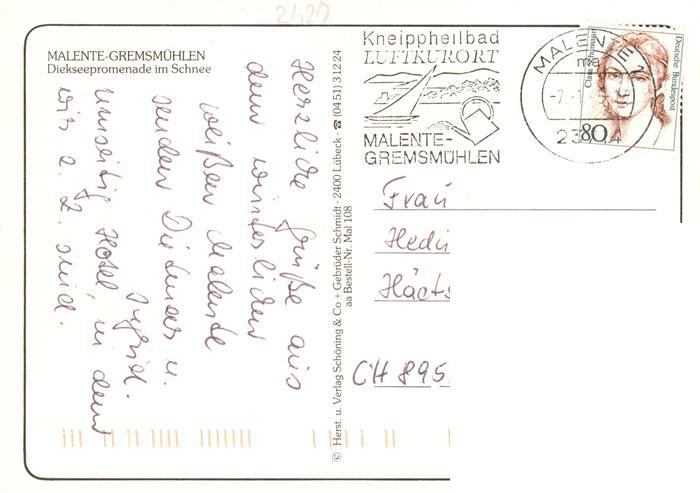 2427
MALENTE-GREMSMÜHLEN
Diekseepromenade im Schnee
Herzliche Grüße aus
dem winterlichen
weißen Malente
senden Dietmar u.
Ingrid.
Umseitig Hotel, in dem
wir z. Z. sind.
© Herst. u. Verlag Schöning & Co + Gebrüder Schmidt · 2400 Lübeck · ☎ (0451) 31224
aa Bestell-Nr. Mal 108
Kneippheilbad
LUFTKURORT
MALENTE-
GREMSMÜHLEN
MALENTE
ma
Clara Schumann
Deutsche Bundespost
80
Frau
CH 895